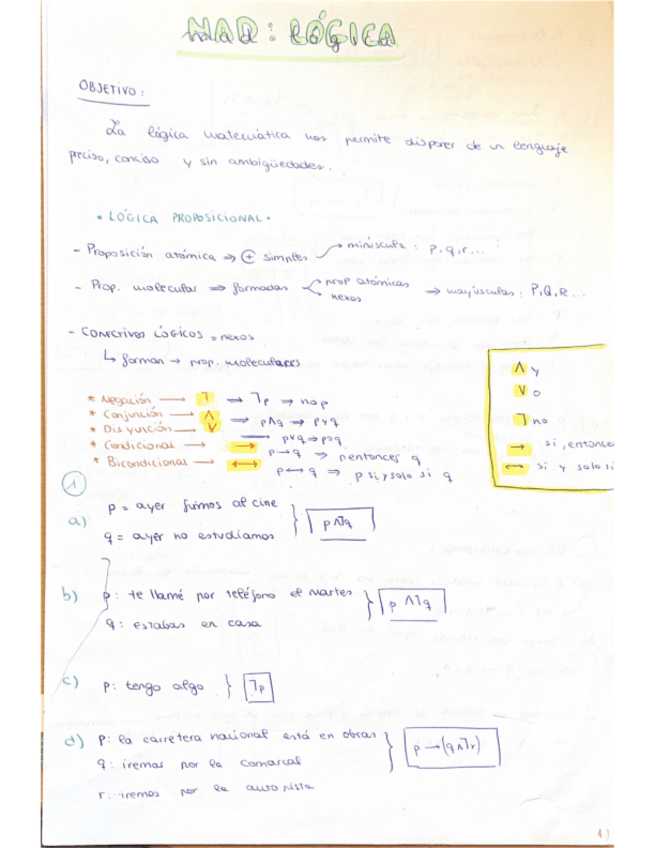 MAD : LÓGICA
OBJETIVO :
La lógica matemática nos permite disponer de un lenguaje
preciso, conciso y sin ambigüedades.
• LÓGICA PROPOSICIONAL •
- Proposición atómica ⇒ ⊕ simples → minúscula : p, q, r ...
- Prop. molecular ⇒ formadas < prop atómicas nexos → mayúsculas : P, Q, R ...
- CONECTIVOS LÓGICOS = nexos
↳ forman → prop. moleculares
* Negación → ⏋ ⇒ ⏋p ⇒ no p
* Conjunción → ∧ ⇒ p∧q ⇒ p y q
* Disyunción → ∨ ⇒ p∨q ⇒ p o q
* Condicional → → p → q ⇒ p entonces q
* Bicondicional → ↔ p ↔ q ⇒ p si y solo si q
∧ y
∨ o
⏋ no
→ si, entonce
↔ si y solo si
①
a) p = ayer fuimos al cine
q = ayer no estudiamos
p∧⏋q
b) p: te llamé por teléfono el martes
q: estabas en casa
p ∧⏋q
c) p: tengo algo } ⏋p
d) p: la carretera nacional está en obras
q: iremos por la comarcal
r: iremos por la autopista
p → (q∧⏋r)
1)